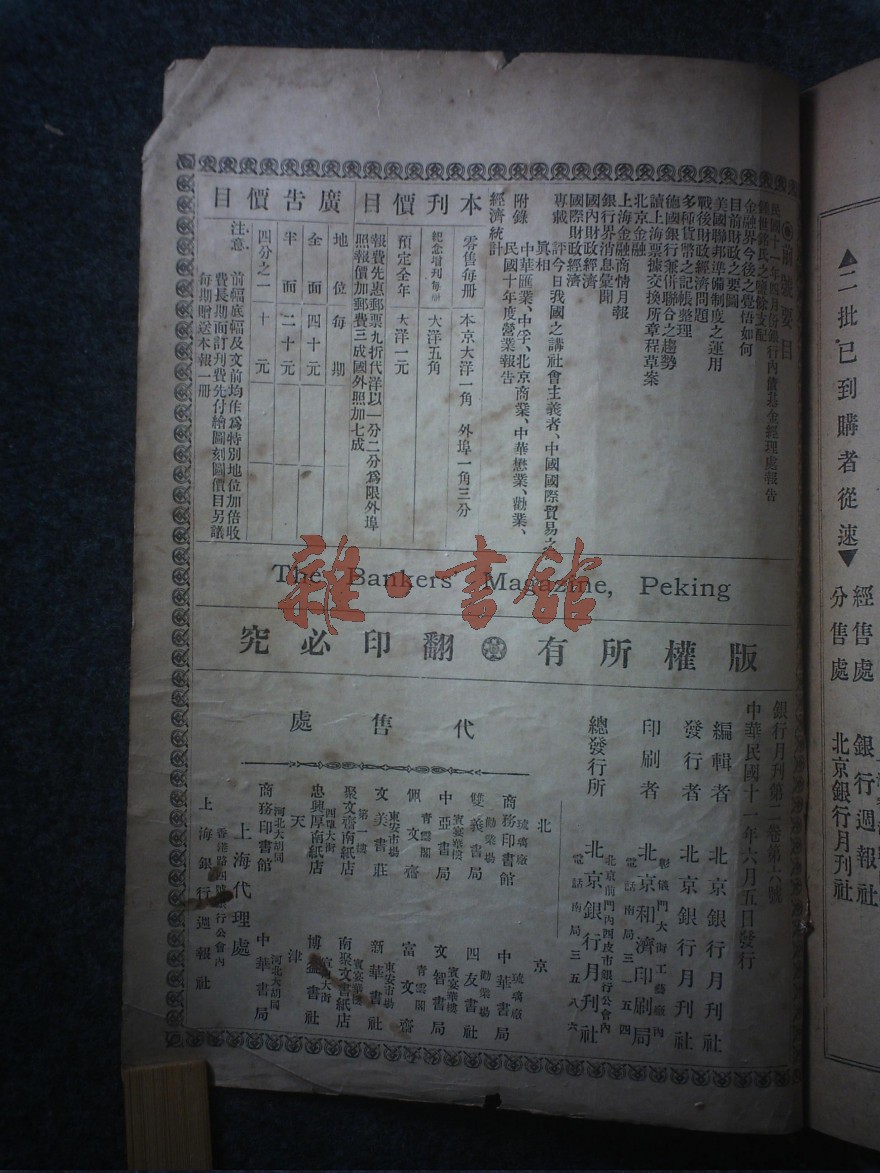 ◉前號要目
民國十一年四月份銀行內債基金經理處報告
鹽餘支配
金融界今後之覺悟如何
目前財政之要圖
美國聯邦準備制度之運用
戰後財政經濟問題
多種貨幣之記帳整理
德國銀行兼併聯合之趨勢
讀上海票據交換所章程草案
北京金融
上海金融商情月報
銀行界消息彙聞
國內財政經濟
國際財政經濟
專載 評今日我國之講社會主義者、中國國際貿易之真相
附錄 中華匯業、中孚、北京商業、中華懋業、勸業、
民國十年度營業報告
經濟統計
本刊價目
零售每冊 本京大洋一角 外埠一角三分
紀念增刊每冊 大洋五角
預定全年 大洋一元
報費先惠郵票九折代洋以一分二分為限外埠
照報價加郵費三成國外照加七成
廣告價目
地位 每期
全面 四十元
半面 二十元
四分之一 十元
注意 前幅底幅及文前均作為特別地位加倍收
費長期面訂刊費先付繪圖刻圖價目另議
每期贈送本報一冊
The Bankers' Magazine, Peking
版權所有 翻印必究
銀行月刊第二卷第六號
中華民國十一年六月五日發行
編輯者 北京銀行月刊社
發行者 北京銀行月刊社
印刷者 北京和濟印刷局
彰儀門大街工藝廠內
電話南局三一五四
總發行所 北京銀行月刊社
北京前門內西皮市銀行公會內
電話南局三五八六
代售處
北京
琉璃廠 商務印書館
琉璃廠 中華書局
勸業場 雙義書局
勸業場 四友書社
賓宴華樓 中亞書局
賓宴華樓 文智書局
青雲閣 佩文齋
青雲閣 富文齋
東安市場 文美書莊
東安市場 新華書社
第一樓 聚文齋南紙店
賓宴華樓 南聚文書紙店
四牌大街 忠興厚南紙店
宣內大街 博益書社
天津
河北大胡同 商務印書館
河北大胡同 中華書局
上海代理處
香港路四號銀行公會內
上海銀行週報社
▲二批已到購者從速▼
經售處 銀行週報社
分售處 北京銀行月刊社
雜·書館